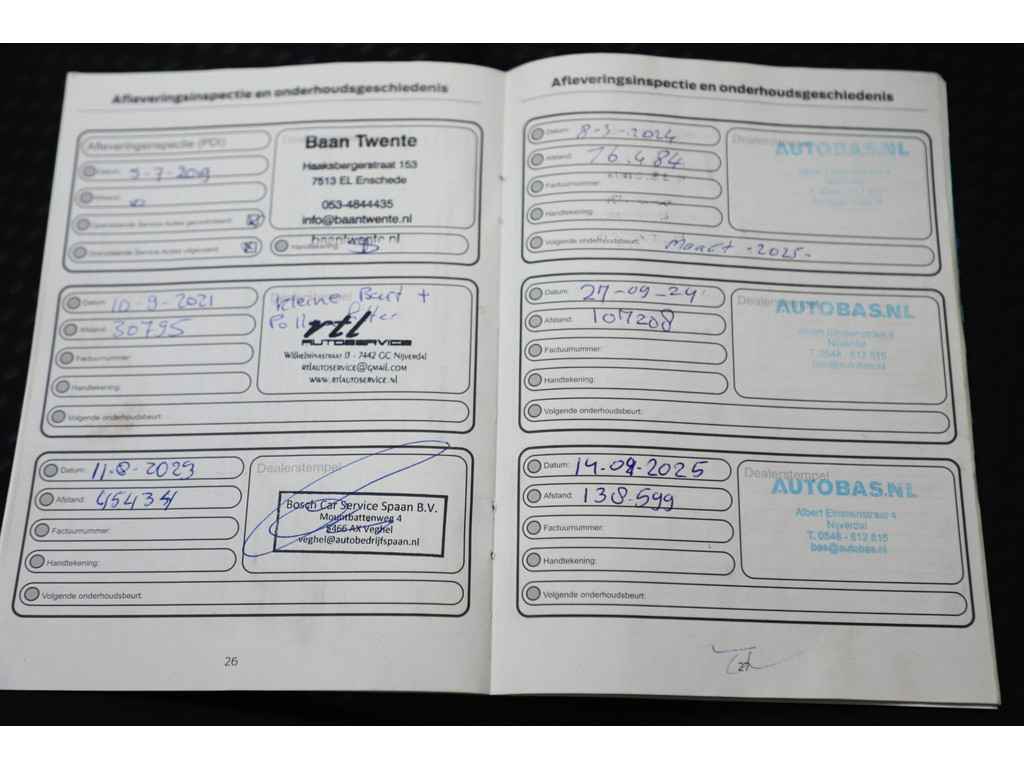 Afleveringsinspectie en onderhoudsgeschiedenis
Afleveringsinspectie (PDI)
Datum: 9-7-2019
Afstand:
Baan Twente
Haaksbergerstraat 153
7513 EL Enschede
053-4844435
info@baantwente.nl
baantwente.nl
Datum: 10-9-2021
Afstand: 30795
Factuurnummer:
Handtekening:
Volgende onderhoudsbeurt:
Kleine Beurt +
Pollenfilter
rtl
AUTOSERVICE
Wilhelminastraat 13 - 7442 GC Nijverdal
RTLAUTOSERVICE@GMAIL.COM
WWW.RTLAUTOSERVICE.NL
Datum: 11-8-2023
Afstand: 45434
Factuurnummer:
Handtekening:
Volgende onderhoudsbeurt:
Dealerstempel
Bosch Car Service Spaan B.V.
Mountbattenweg 4
5466 AX Veghel
veghel@autobedrijfspaan.nl
26
Afleveringsinspectie en onderhoudsgeschiedenis
Datum: 8-3-2024
Afstand: 76.484
Factuurnummer:
Handtekening:
Volgende onderhoudsbeurt: Maart -2025-
AUTOBAS.NL
Datum: 27-09-24
Afstand: 107208
Factuurnummer:
Handtekening:
Volgende onderhoudsbeurt:
AUTOBAS.NL
Albert Einsteinstraat 4
Nijverdal
T. 0548 - 612 615
bas@autobas.nl
Datum: 14-09-2025
Afstand: 138-599
Factuurnummer:
Handtekening:
Volgende onderhoudsbeurt:
Dealerstempel
AUTOBAS.NL
Albert Einsteinstraat 4
Nijverdal
T. 0548 - 612 615
bas@autobas.nl
27